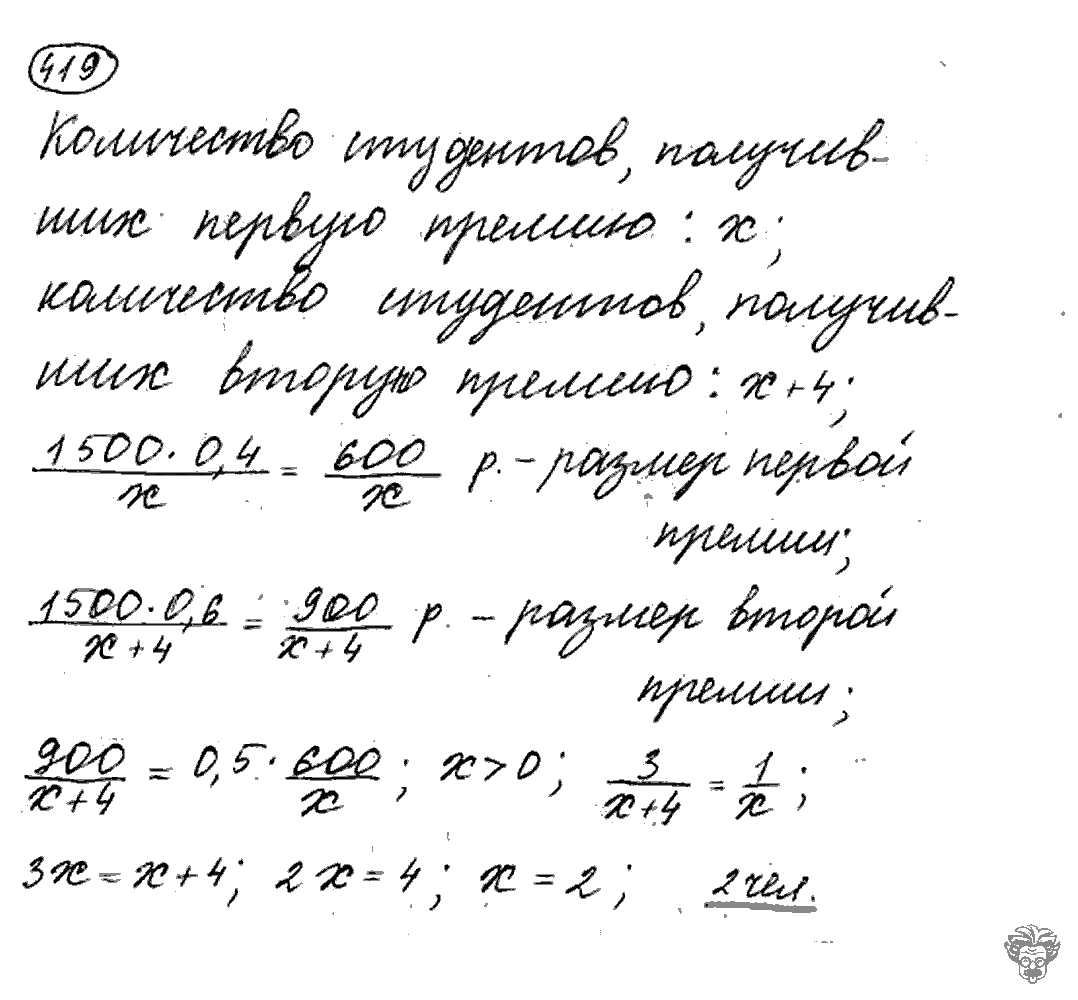 419
Количество студентов, получив-
ших первую премию: x;
количество студентов, получив-
ших вторую премию: x+4;
1500·0,4/x = 600/x р. – размер первой
премии;
1500·0,6/x+4 = 900/x+4 р. – размер второй
премии;
900/x+4 = 0,5·600/x; x>0; 3/x+4 = 1/x;
3x=x+4; 2x=4; x=2; 2 чел.